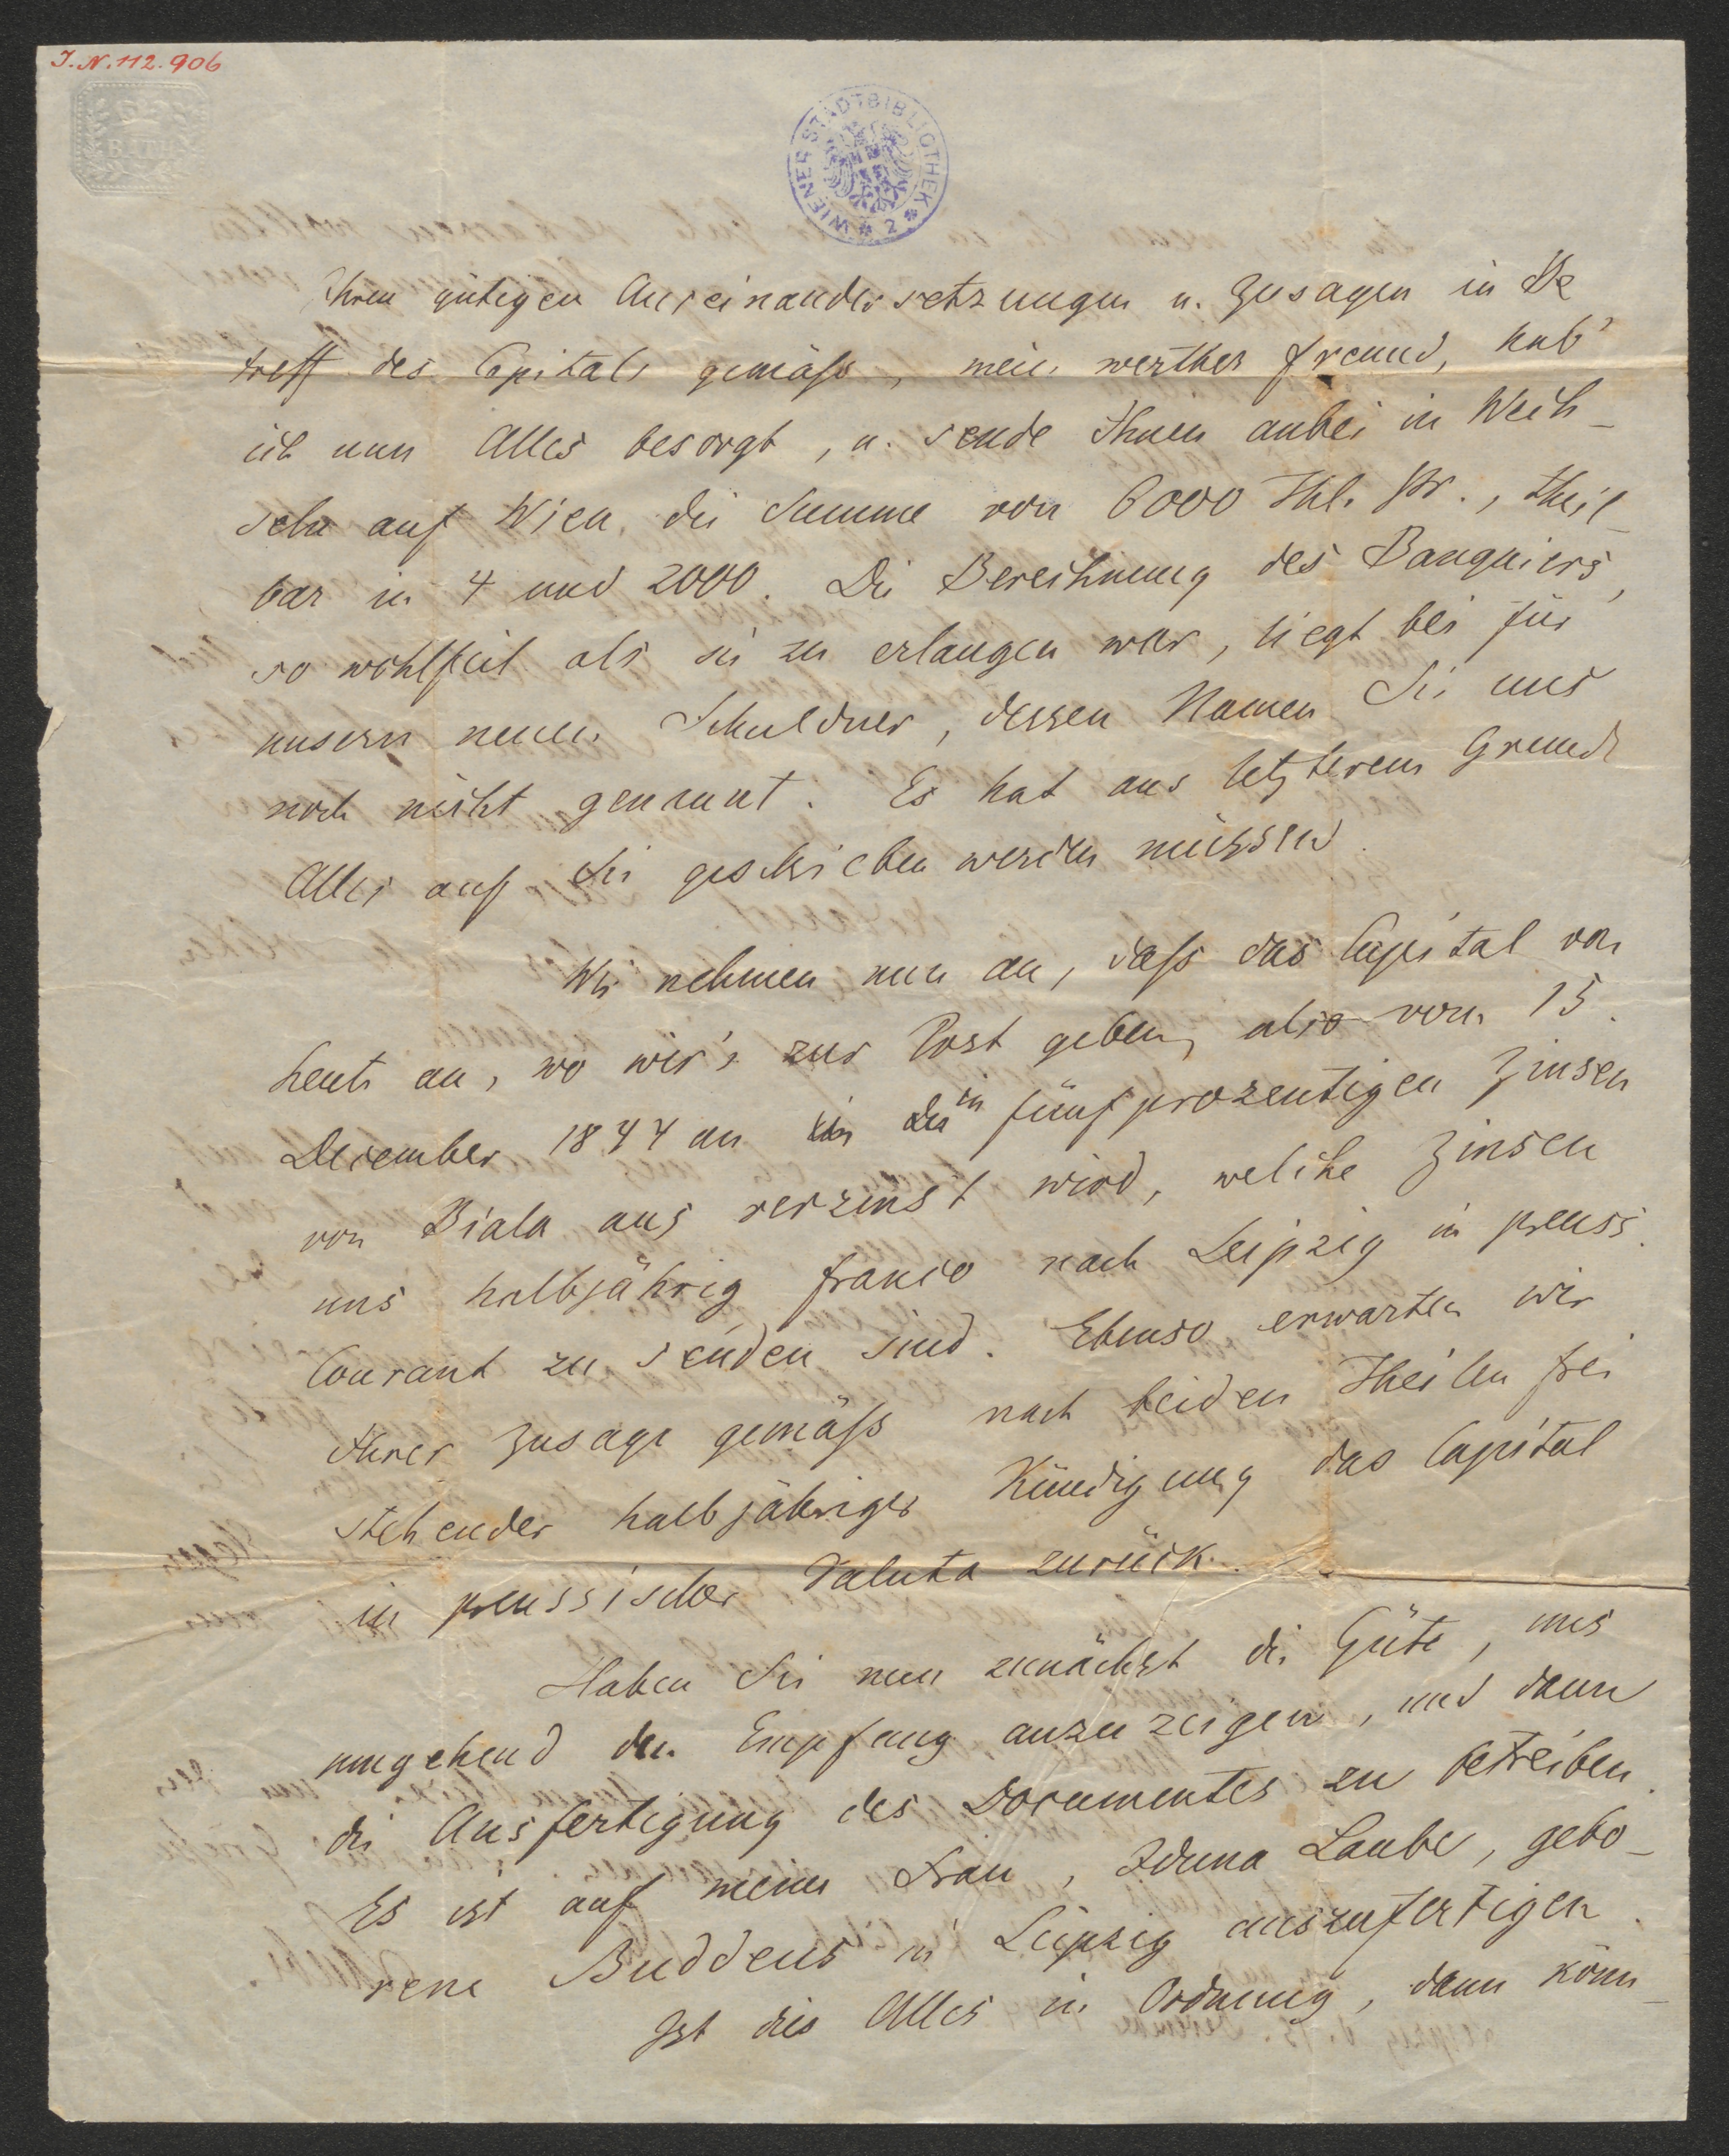 J.N. 112.906
BATH
WIENER STADTBIBLIOTHEK * 2 *
Ihren gütigen Auseinandersetzungen u. Zusagen in Be
treff des Capitals gemäß, mein werther Freund, hab'
ich nun Alles besorgt, u. sende Ihnen anbei in Wech-
seln auf Wien die Summe von 6000 Thl. Pr., theil-
bar in 4 und 2000. Die Berechnung des Banquiers,
so wohlfeil als sie zu erlangen war, liegt bei für
unsern neuen Schuldner, dessen Namen Sie uns
noch nicht genannt. Es hat aus letzterem Grunde
Alles auf Sie geschrieben werden müssen.
Wir nehmen nun an, daß das Capital von
heute an, wo wir's zur Post geben, also vom 15.
December 1844 an in den fünfprozentigen Zinsen
von Biala aus verzinst wird, welche Zinsen
uns halbjährig franco nach Leipzig in preuss.
Courant zu senden sind. Ebenso erwarten wir
Ihrer Zusage gemäß nach beiden Theilen frei
stehender halbjähriger Kündigung das Capital
in preussischer Valuta zurück.
Haben Sie nun zunächst die Güte, uns
umgehend den Empfang anzuzeigen, und dann
die Ausfertigung des Documentes zu betreiben.
Es ist auf meine Frau, Iduna Laube, gebo-
rene Buddeus in Leipzig auszufertigen.
Ist dies Alles in Ordnung, dann könn-